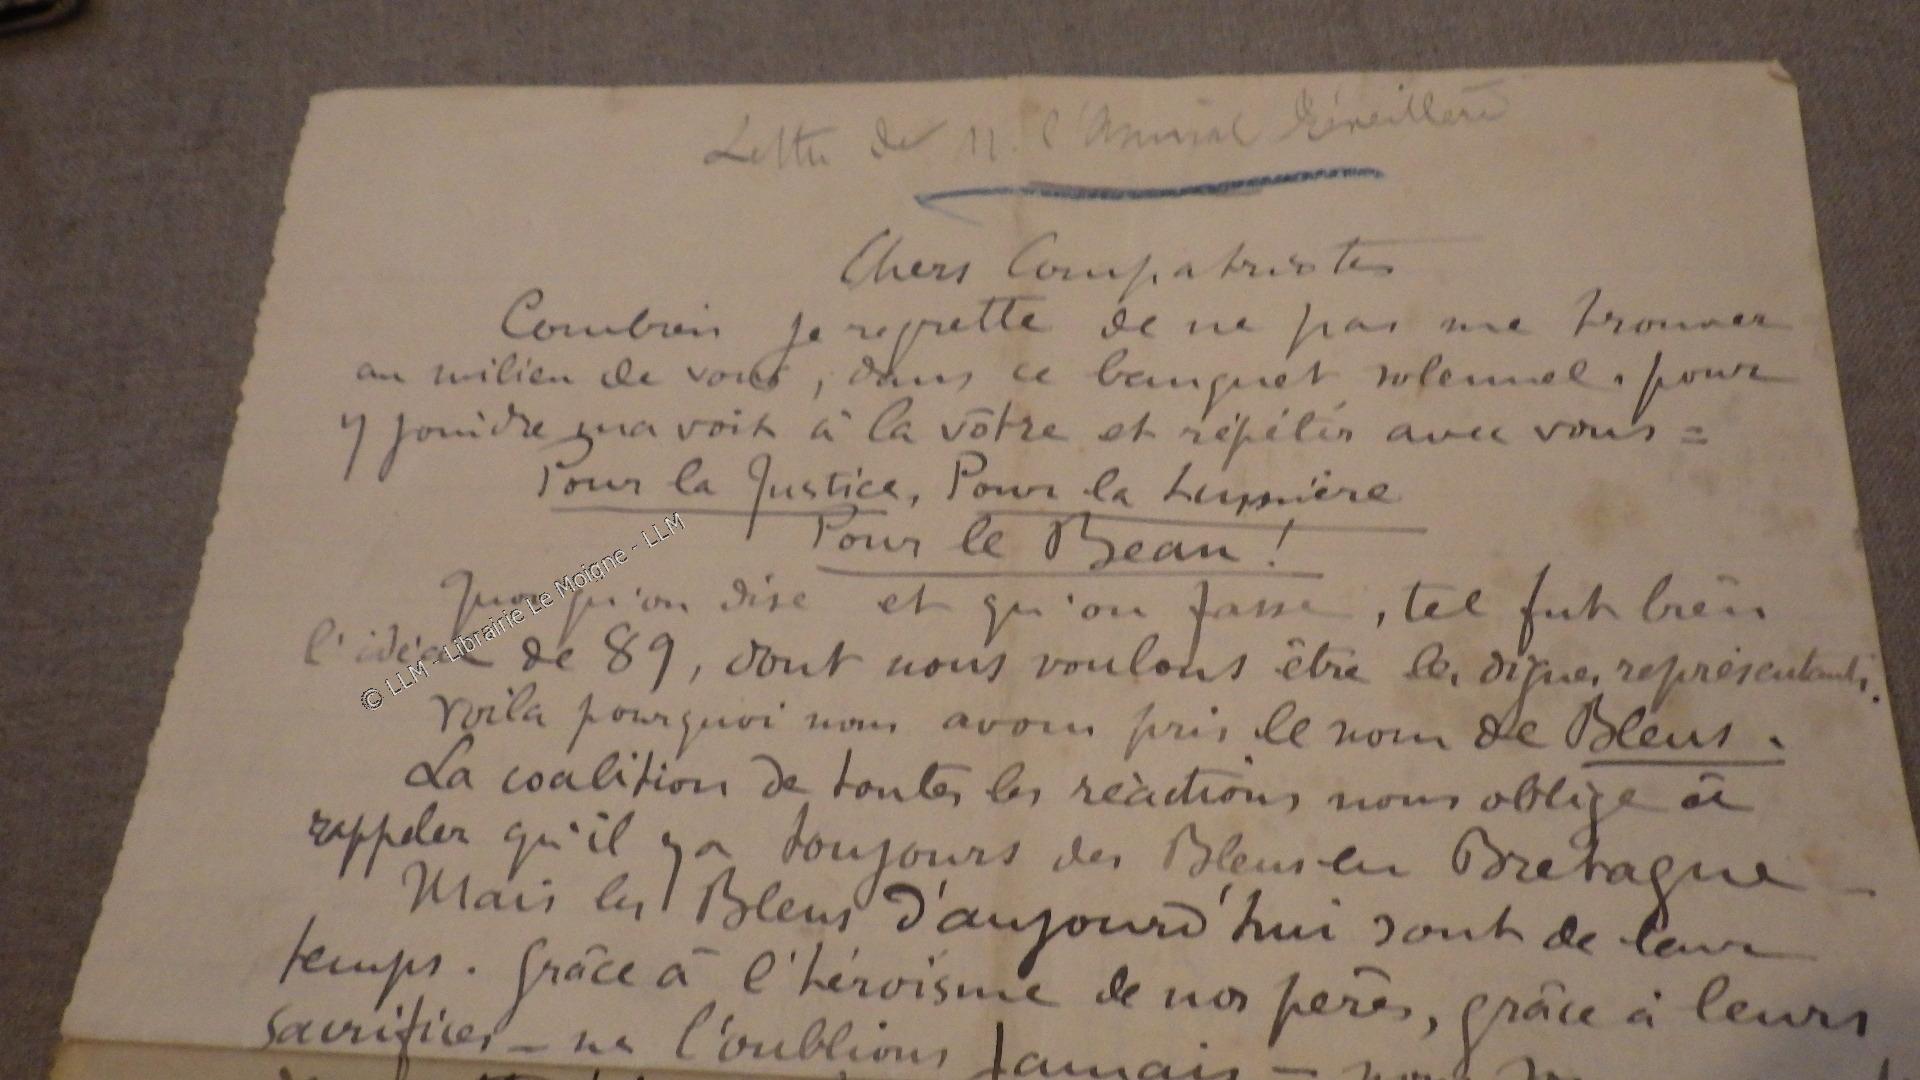 Lettre de M. l'Amiral Réveillère
Chers Compatriotes
Combien je regrette de ne pas me trouver
au milieu de vous, dans ce banquet solennel, pour
y joindre ma voix à la vôtre et répéter avec vous =
Pour la Justice, Pour la Lumière
Pour le Beau !
Quoiqu'on dise et qu'on fasse, tel fut bien
l'idéal de 89, dont nous voulons être les dignes représentants.
Voilà pourquoi nous avons pris le nom de Bleus.
La coalition de toutes les réactions nous oblige à
rappeler qu'il y a toujours des Bleus en Bretagne -
Mais les Bleus d'aujourd'hui sont de leur
temps. Grâce à l'héroïsme de nos pères, grâce à leurs
sacrifices - ne l'oublions jamais - nous
© LLM - Librairie Le Moigne - LLM